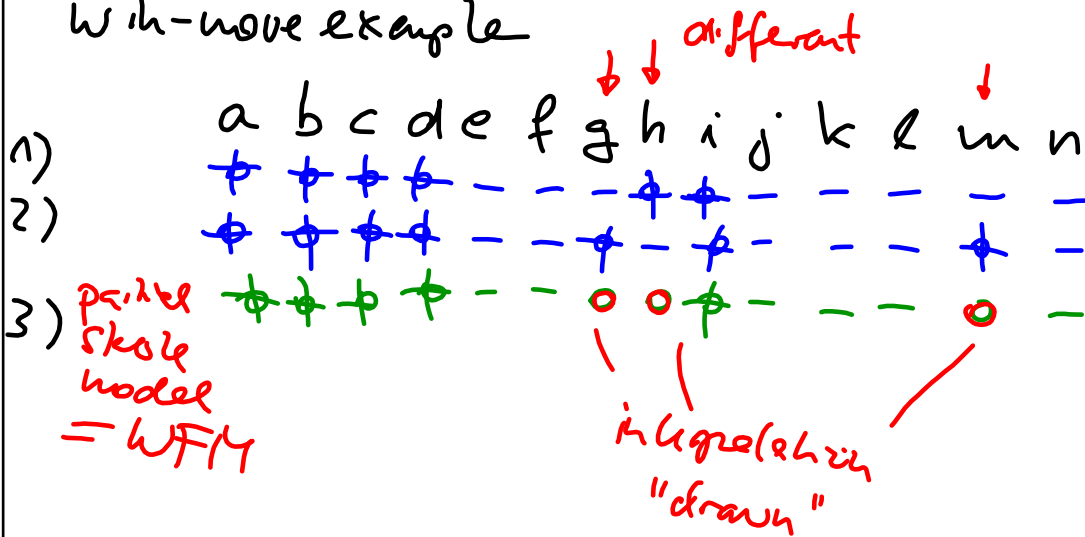 win-move example
different
a b c d e f g h i j k l m n
1)
2)
3) partial
stable
model
= WFM
interpretation
"drawn"